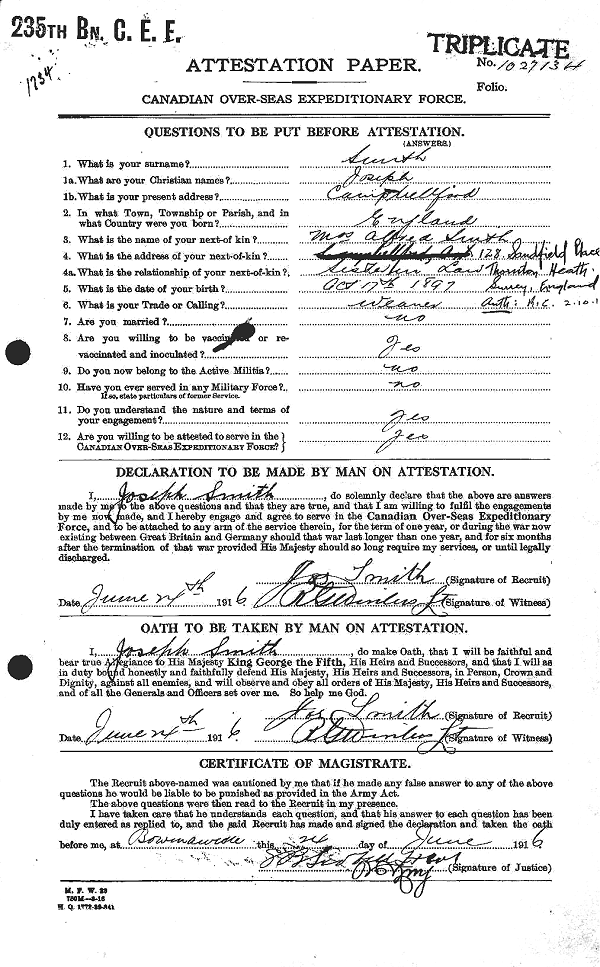 235TH BN. C. E. F.
TRIPLICATE
1734
ATTESTATION PAPER.
No. 1027134
Folio.
CANADIAN OVER-SEAS EXPEDITIONARY FORCE.
QUESTIONS TO BE PUT BEFORE ATTESTATION.
(ANSWERS.)
1. What is your surname? Smith
1a. What are your Christian names? Joseph
1b. What is your present address? Campbellford
2. In what Town, Township or Parish, and in
what Country were you born? England
3. What is the name of your next-of kin? Mrs Alfred Smith
4. What is the address of your next-of-kin? Campbellford, Ont 128 Sandfield Place
4a. What is the relationship of your next-of-kin? Sister in Law Thornton Heath.
5. What is the date of your birth? Oct 17th 1897 Surrey, England
6. What is your Trade or Calling? Weaver Auth: R.C. 2-10-1
7. Are you married? no
8. Are you willing to be vaccinated or re-
vaccinated and inoculated? Yes
9. Do you now belong to the Active Militia? no
10. Have you ever served in any Military Force? no
If so, state particulars of former Service.
11. Do you understand the nature and terms of
your engagement? Yes
12. Are you willing to be attested to serve in the
CANADIAN OVER-SEAS EXPEDITIONARY FORCE? Yes
DECLARATION TO BE MADE BY MAN ON ATTESTATION.
I, Joseph Smith, do solemnly declare that the above are answers
made by me to the above questions and that they are true, and that I am willing to fulfil the engagements
by me now made, and I hereby engage and agree to serve in the Canadian Over-Seas Expeditionary
Force, and to be attached to any arm of the service therein, for the term of one year, or during the war now
existing between Great Britain and Germany should that war last longer than one year, and for six months
after the termination of that war provided His Majesty should so long require my services, or until legally
discharged.
Jos Smith (Signature of Recruit)
Date June 24th 1916 (Signature of Witness)
OATH TO BE TAKEN BY MAN ON ATTESTATION.
I, Joseph Smith, do make Oath, that I will be faithful and
bear true Allegiance to His Majesty King George the Fifth, His Heirs and Successors, and that I will as
in duty bound honestly and faithfully defend His Majesty, His Heirs and Successors, in Person, Crown and
Dignity, against all enemies, and will observe and obey all orders of His Majesty, His Heirs and Successors,
and of all the Generals and Officers set over me. So help me God.
Jos Smith (Signature of Recruit)
Date June 24th 1916 (Signature of Witness)
CERTIFICATE OF MAGISTRATE.
The Recruit above-named was cautioned by me that if he made any false answer to any of the above
questions he would be liable to be punished as provided in the Army Act.
The above questions were then read to the Recruit in my presence.
I have taken care that he understands each question, and that his answer to each question has been
duly entered as replied to, and the said Recruit has made and signed the declaration and taken the oath
before me, at Bowmanville this 24 day of June 1916
(Signature of Justice)
M. F. W. 23
750M—2-16
H. Q. 1772-39-841